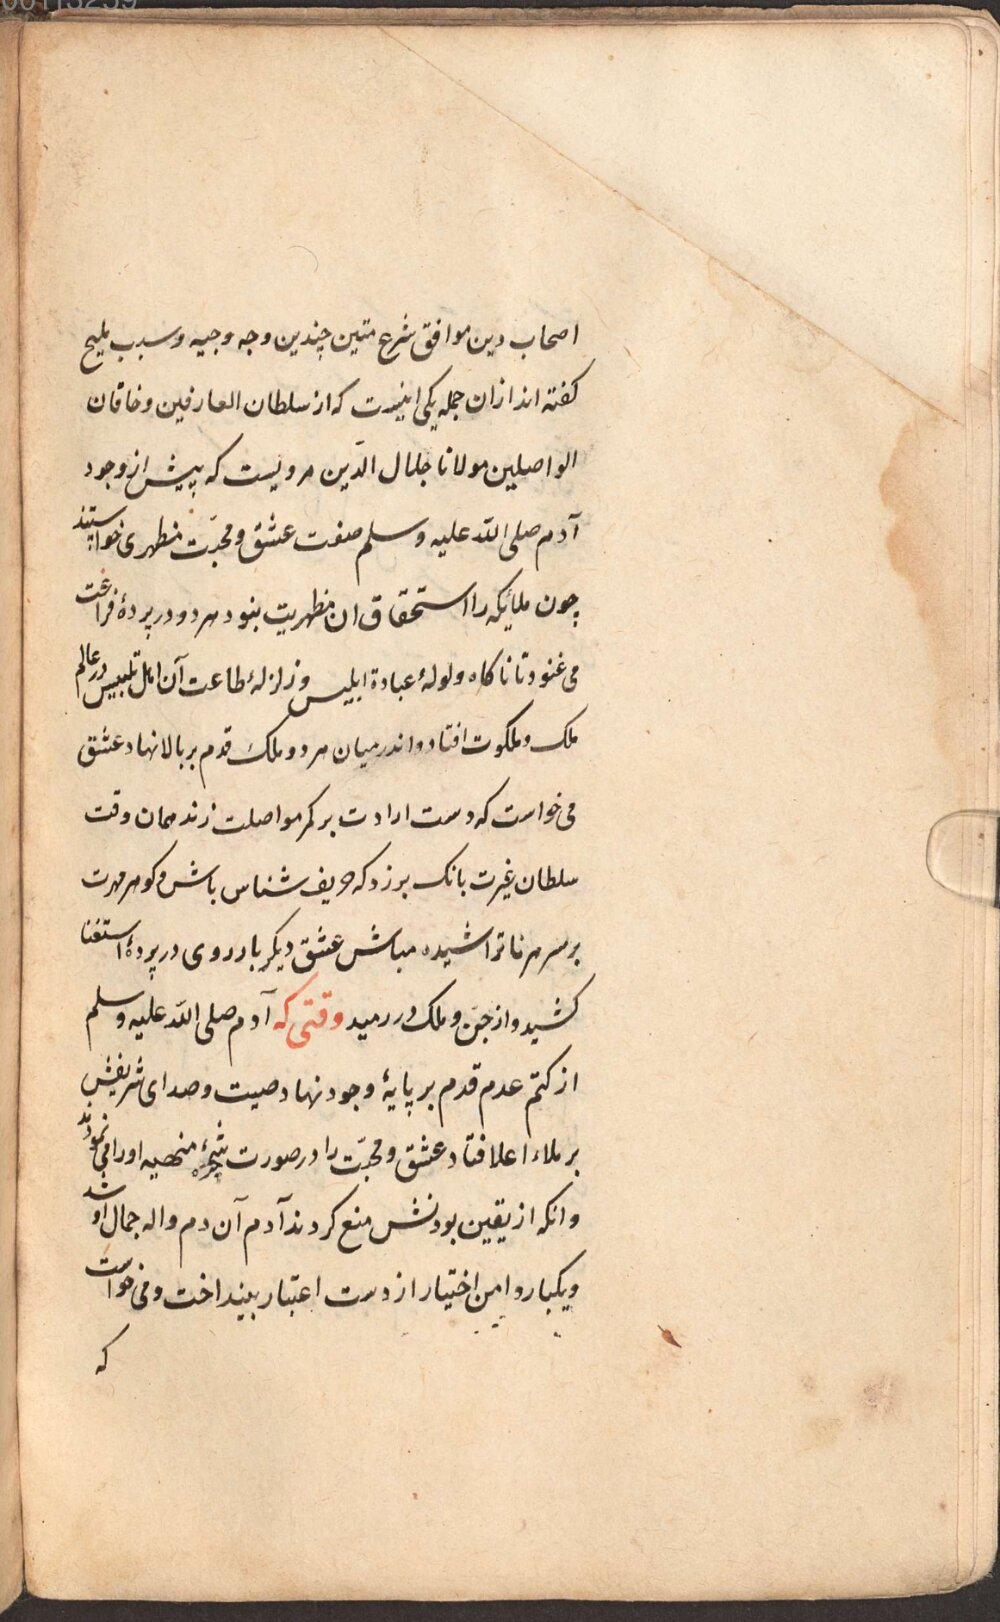 00113259
اصحاب دین موافق شرع متین چندین وجه وجیه و سبب ملیح
کفته اند ازان جمله یکی اینست که از سلطان العارفین و خاقان
الواصلین مولانا جلال الدّین مرویست که پیش از وجود
آدم صلی اللّه علیه وسلم صفوت عشق و محبّت مظهری خواستند
چون ملایکه را استحقاق ان مظهریت بنود هر دو در پردۀ فراغت
می غنود تا ناکاه ولولۀ عبادة ابلیس و زلزلۀ طاعت آن اهل تلبیس در عالم
ملک و ملکوت افتاد و اندر میان هر دو ملک قدم بر بالا نهاد عشق
می خواست که دست ارادت بر کمر مواصلت زند همان وقت
سلطان غیرت بانک برزد که حریف شناس باش و کوهر مهرت
بر سر هر ناتراشیده مباش عشق دیکر بار روی در پردۀ استغنا
کشید و از جن و ملک در رمید وقتی که آدم صلی اللّه علیه وسلم
از کتم عدم قدم بر پایۀ وجود نهاد صیت و صدای شریفش
بر ملاء اعلا فتاد عشق و محبّت را در صورت شجرۀ منهیه او را می نمودند
وانکه از یقین بودنش منع کردند آدم آن دم واله جمال او شد
ویکبار دامن اختیار از دست اعتبار بینداخت و می خواست
که